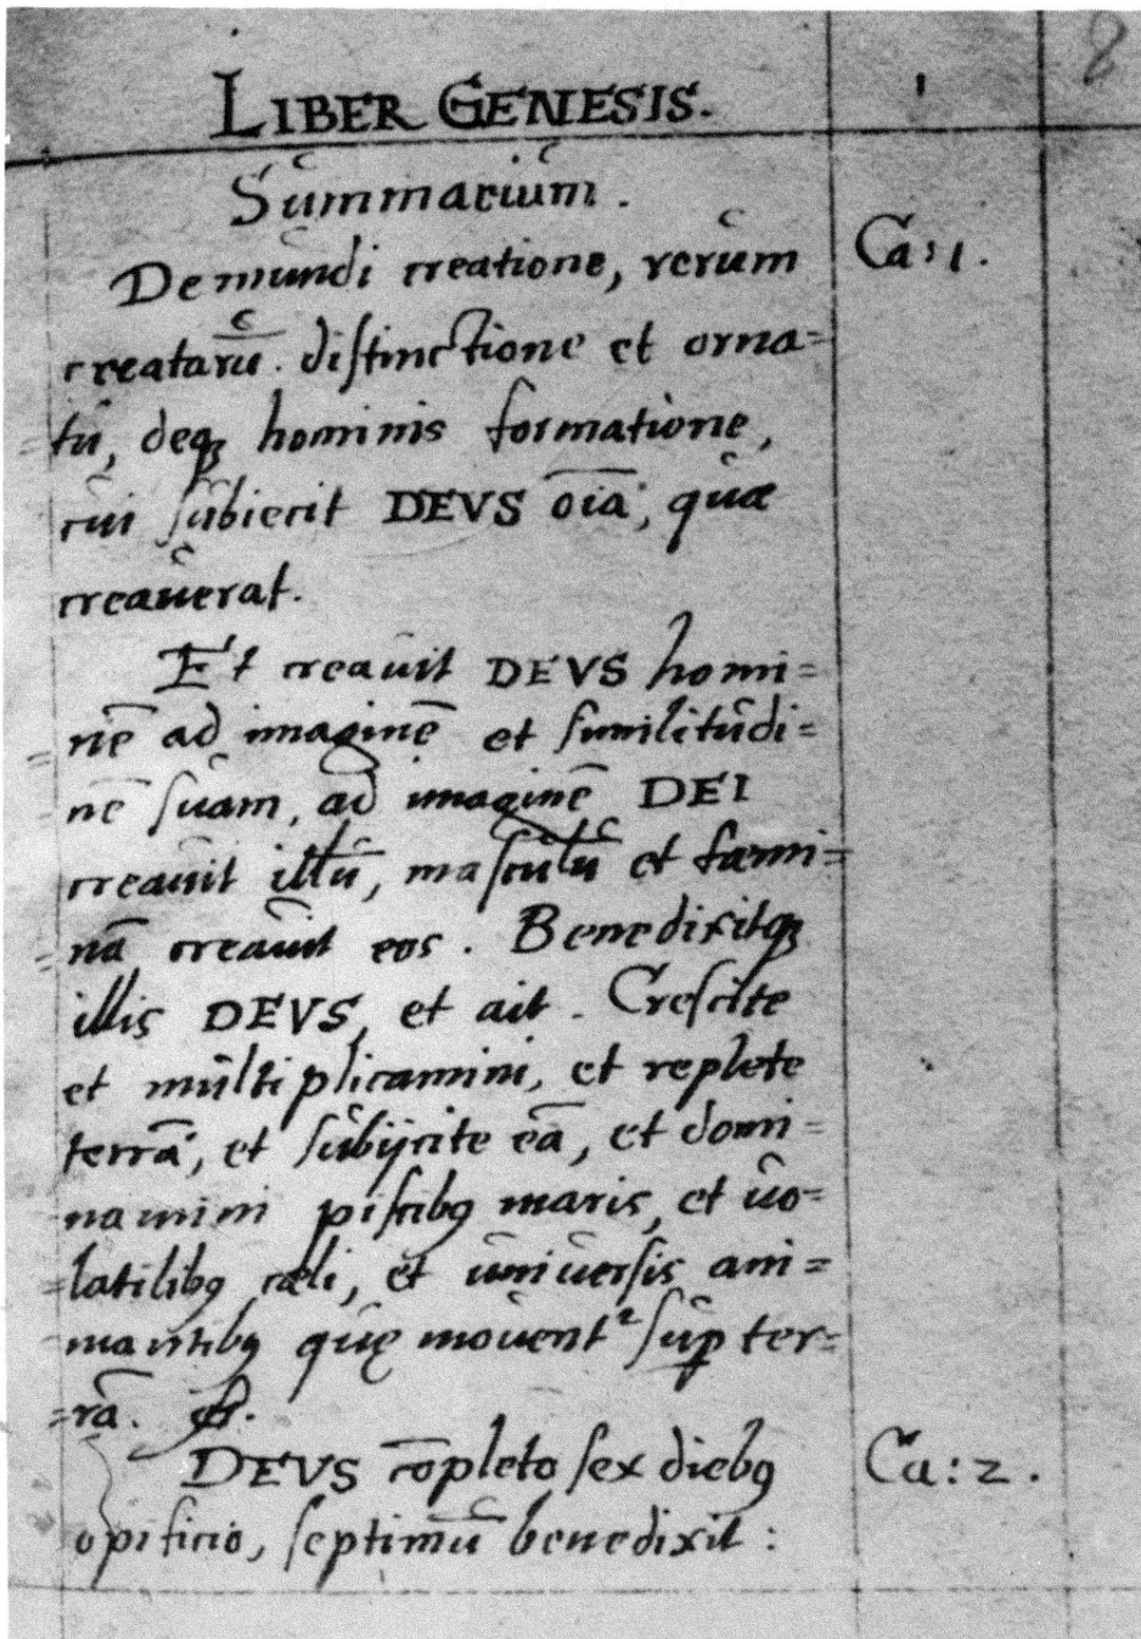 LIBER GENESIS. 1 8
Summarium.
De mundi creatione, rerum Ca: 1.
creatarū. distinctione et orna=
tu, deqꝫ hominis formatione,
cui subiecit DEVS oīa, quæ
creauerat.
Et creauit DEVS homi=
=nē ad imaginē et similitudi=
=nē suam, ad imaginē DEI
creauit illū, masculū et fæmi=
=nā creauit eos. Benedixitqꝫ
illis DEVS, et ait. Crescite
et multiplicamini, et replete
terrā, et subijcite eā, et domi=
namini piscibꝰ maris, et uo=
=latilibꝰ cæli, et uniuersis ani=
=mantibꝰ quę mouentᷣ suꝑ ter=
=rā.
DEVS cōpleto sex diebꝰ Ca: 2.
opificio, septimū benedixit: